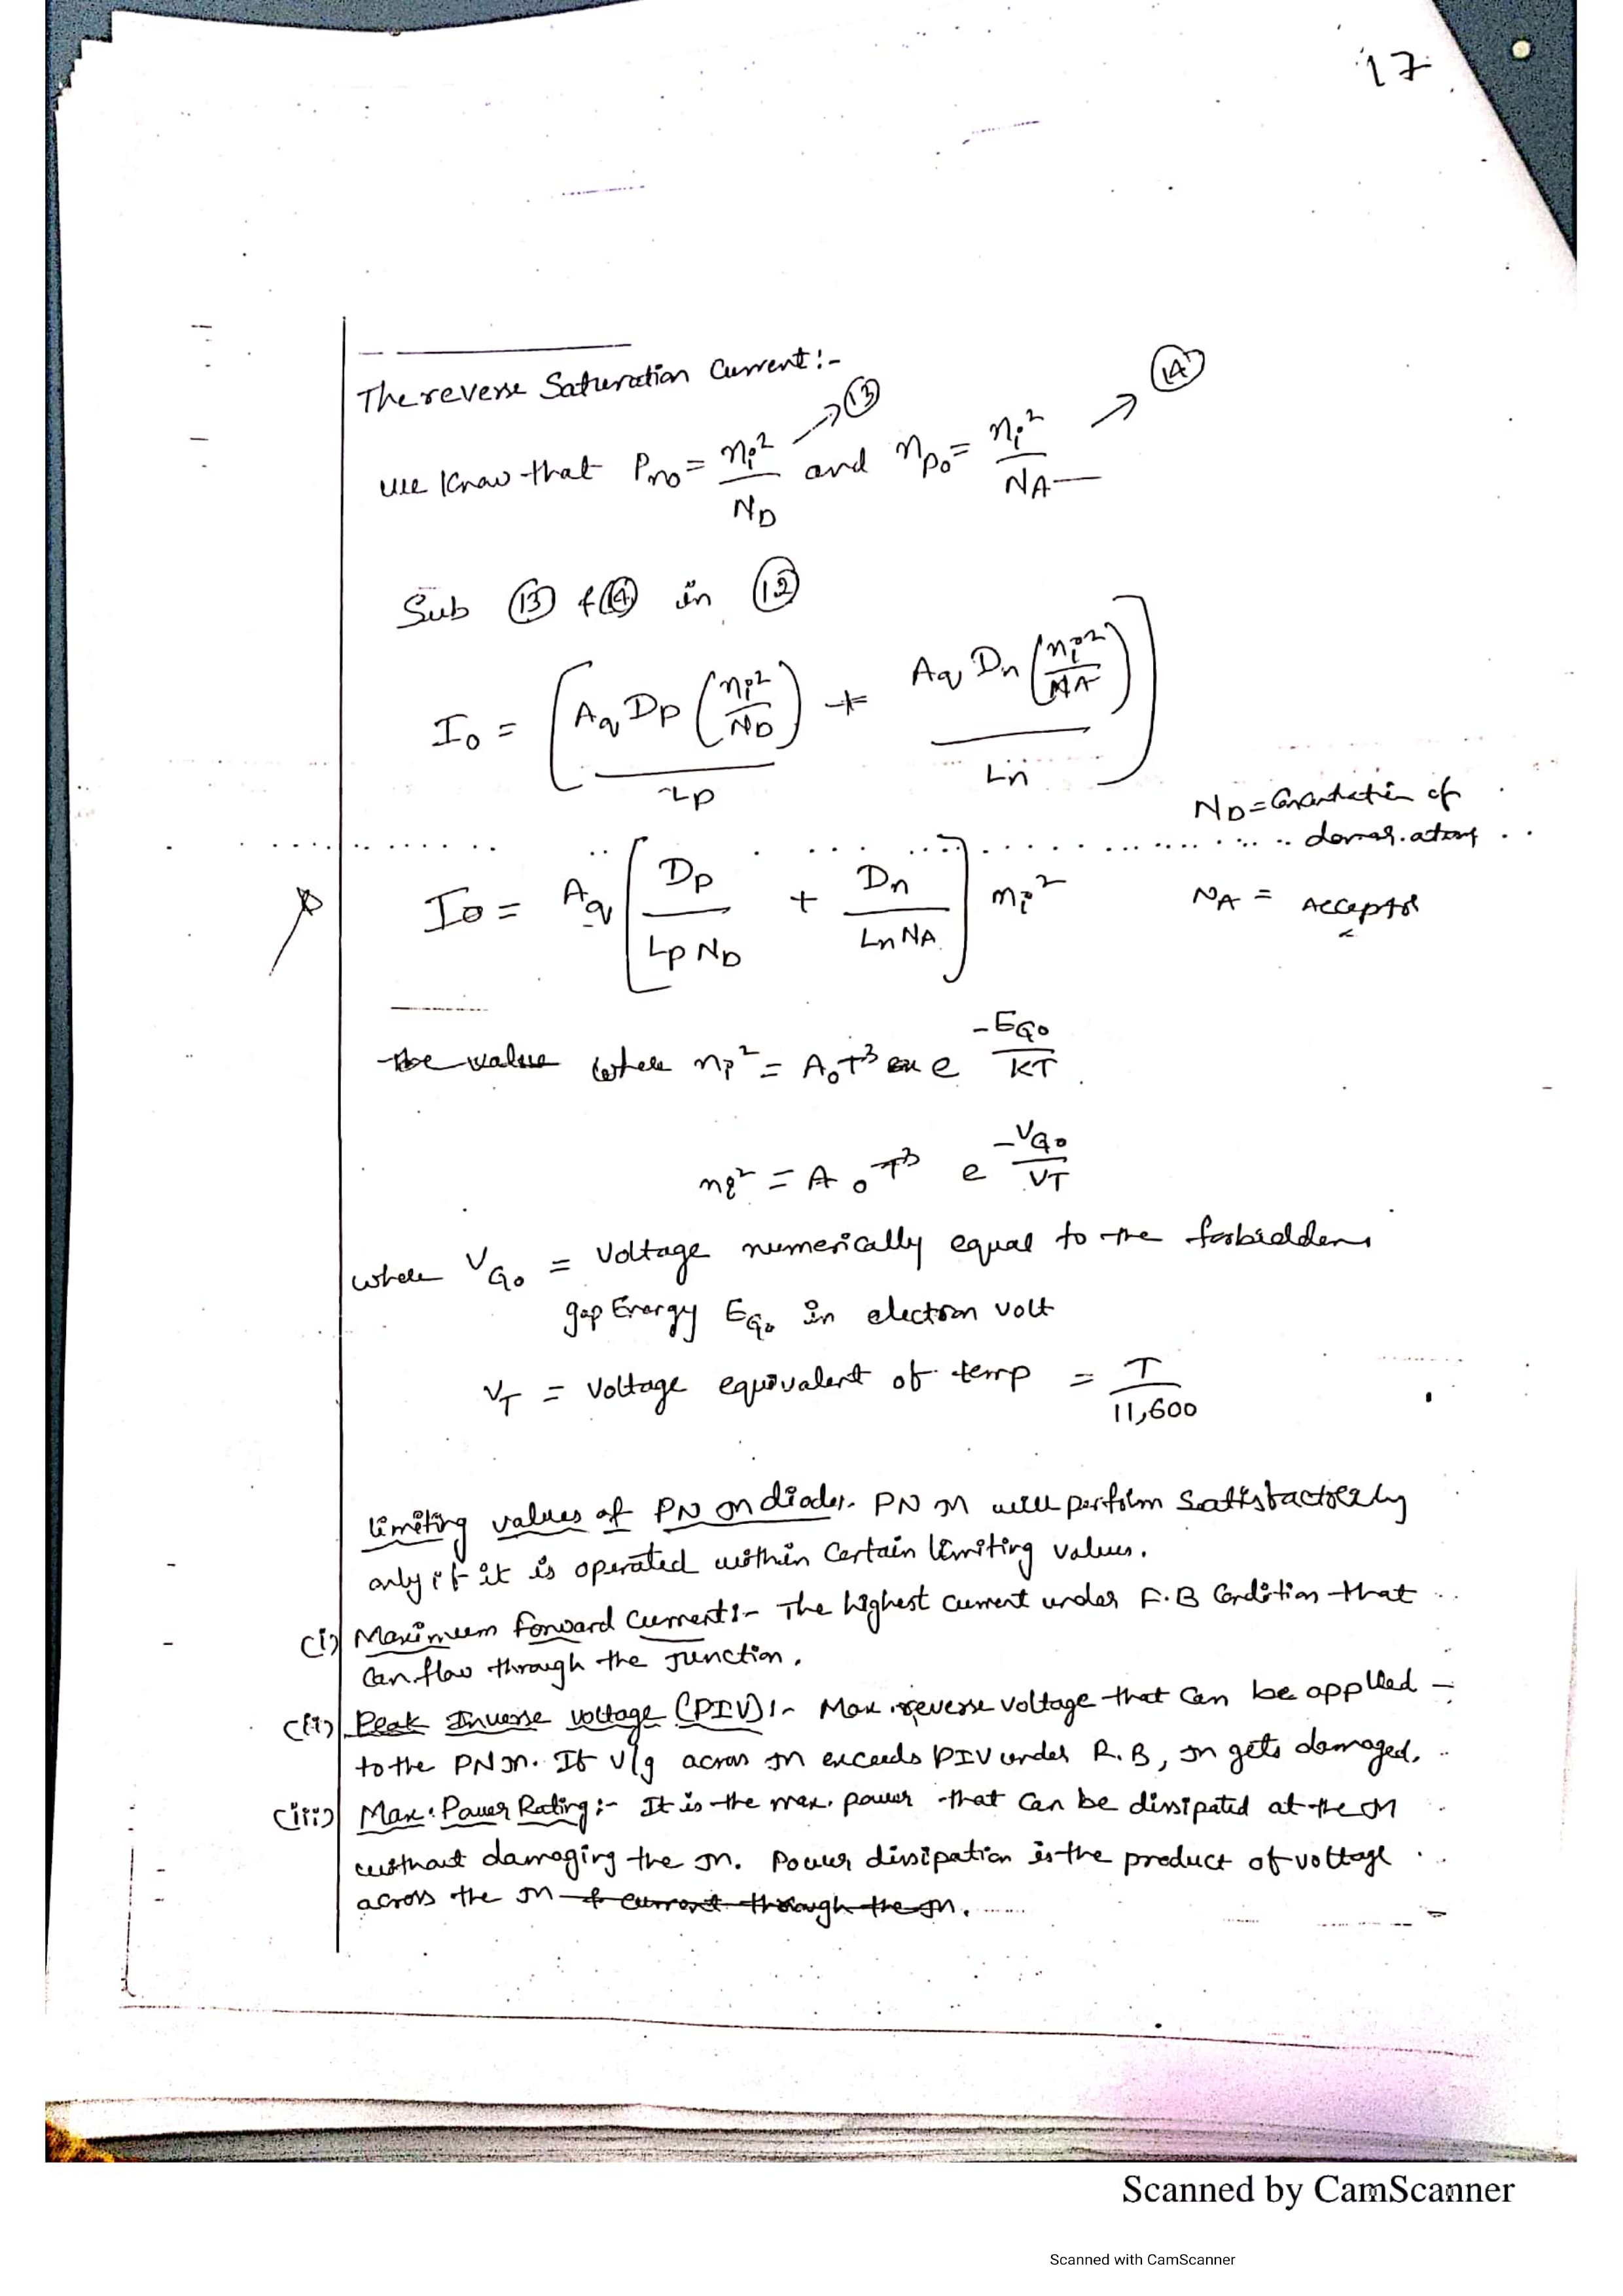 17
The reverse Saturation Current:-
we know that Pno = ni²/ND → (13) and npo = ni²/NA → (14)
Sub (13) & (14) in (12)
Io = [Aq Dp (ni²/ND)/Lp + Aq Dn (ni²/NA)/Ln]
ND = Concentration of
donor atoms
Io = Aq [Dp/(Lp ND) + Dn/(Ln NA)] ni²
NA = Acceptor
the value where ni² = AoT³ e^(-EGo/KT)
ni² = AoT³ e^(-VGo/VT)
where VGo = Voltage numerically equal to the forbidden
gap Energy EGo in electron volt
VT = Voltage equivalent of temp = T/11,600
limiting values of PN Jn diodes. PN Jn will perform satisfactorily
only if it is operated within certain limiting values.
(i) Maximum forward Current:- The highest current under F.B Condition that
can flow through the junction.
(ii) Peak Inverse voltage (PIV):- Max. reverse voltage that can be applied
to the PN Jn. If v/g across Jn exceeds PIV under R.B, Jn gets damaged.
(iii) Max. Power Rating:- It is the max. power that can be dissipated at the Jn
without damaging the Jn. Power dissipation is the product of voltage
across the Jn & current through the Jn.
Scanned by CamScanner
Scanned with CamScanner